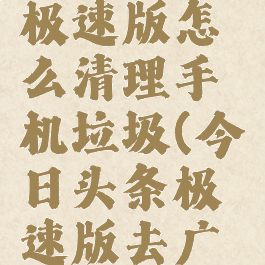 极速版怎
么清理手
机垃圾(今
日头条极
速版去广